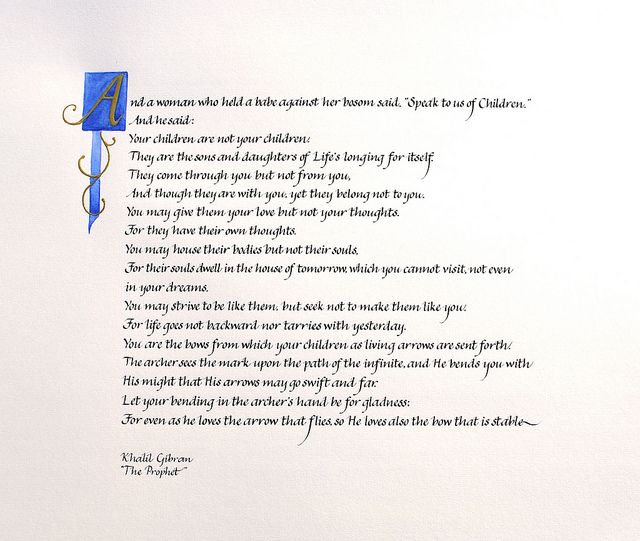 And a woman who held a babe against her bosom said, "Speak to us of Children."
And he said:
Your children are not your children:
They are the sons and daughters of Life's longing for itself.
They come through you but not from you,
And though they are with you, yet they belong not to you.
You may give them your love but not your thoughts.
For they have their own thoughts.
You may house their bodies but not their souls,
For their souls dwell in the house of tomorrow, which you cannot visit, not even
in your dreams.
You may strive to be like them, but seek not to make them like you.
For life goes not backward nor tarries with yesterday.
You are the bows from which your children as living arrows are sent forth.
The archer sees the mark upon the path of the infinite, and He bends you with
His might that His arrows may go swift and far.
Let your bending in the archer's hand be for gladness:
For even as he loves the arrow that flies, so He loves also the bow that is stable
Khalil Gibran
"The Prophet"